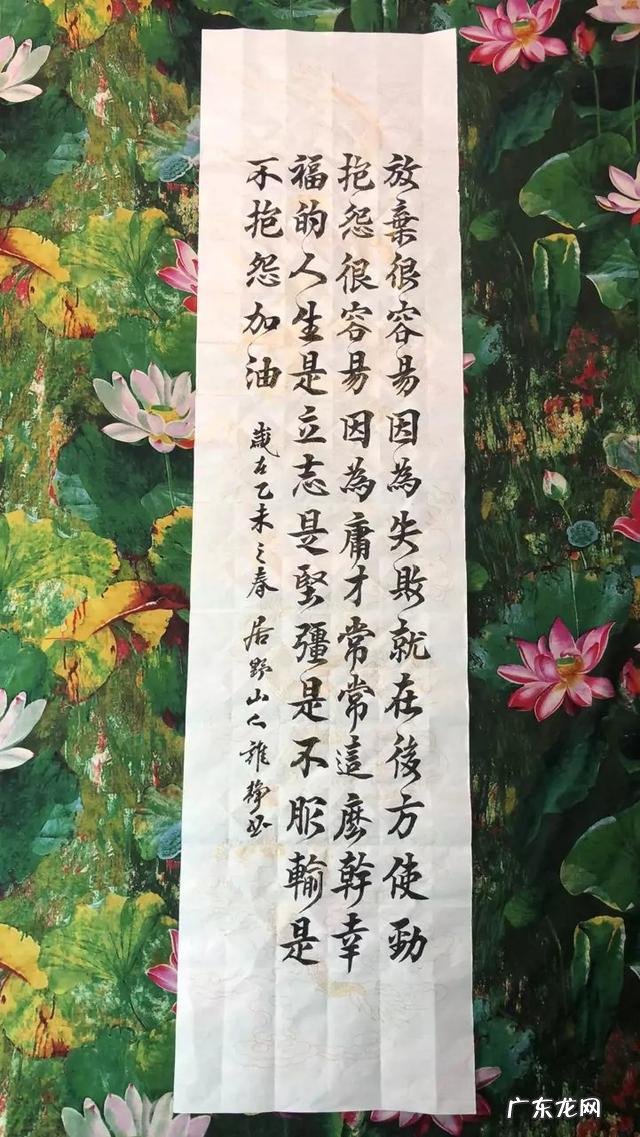 放棄很容易因為失敗就在後方使勁
抱怨很容易因為庸才常常這麼幹幸
福的人生是立志是堅彊是不服輸是
不抱怨加油
歲在乙未之春 居野山人雅静书
广东龙网